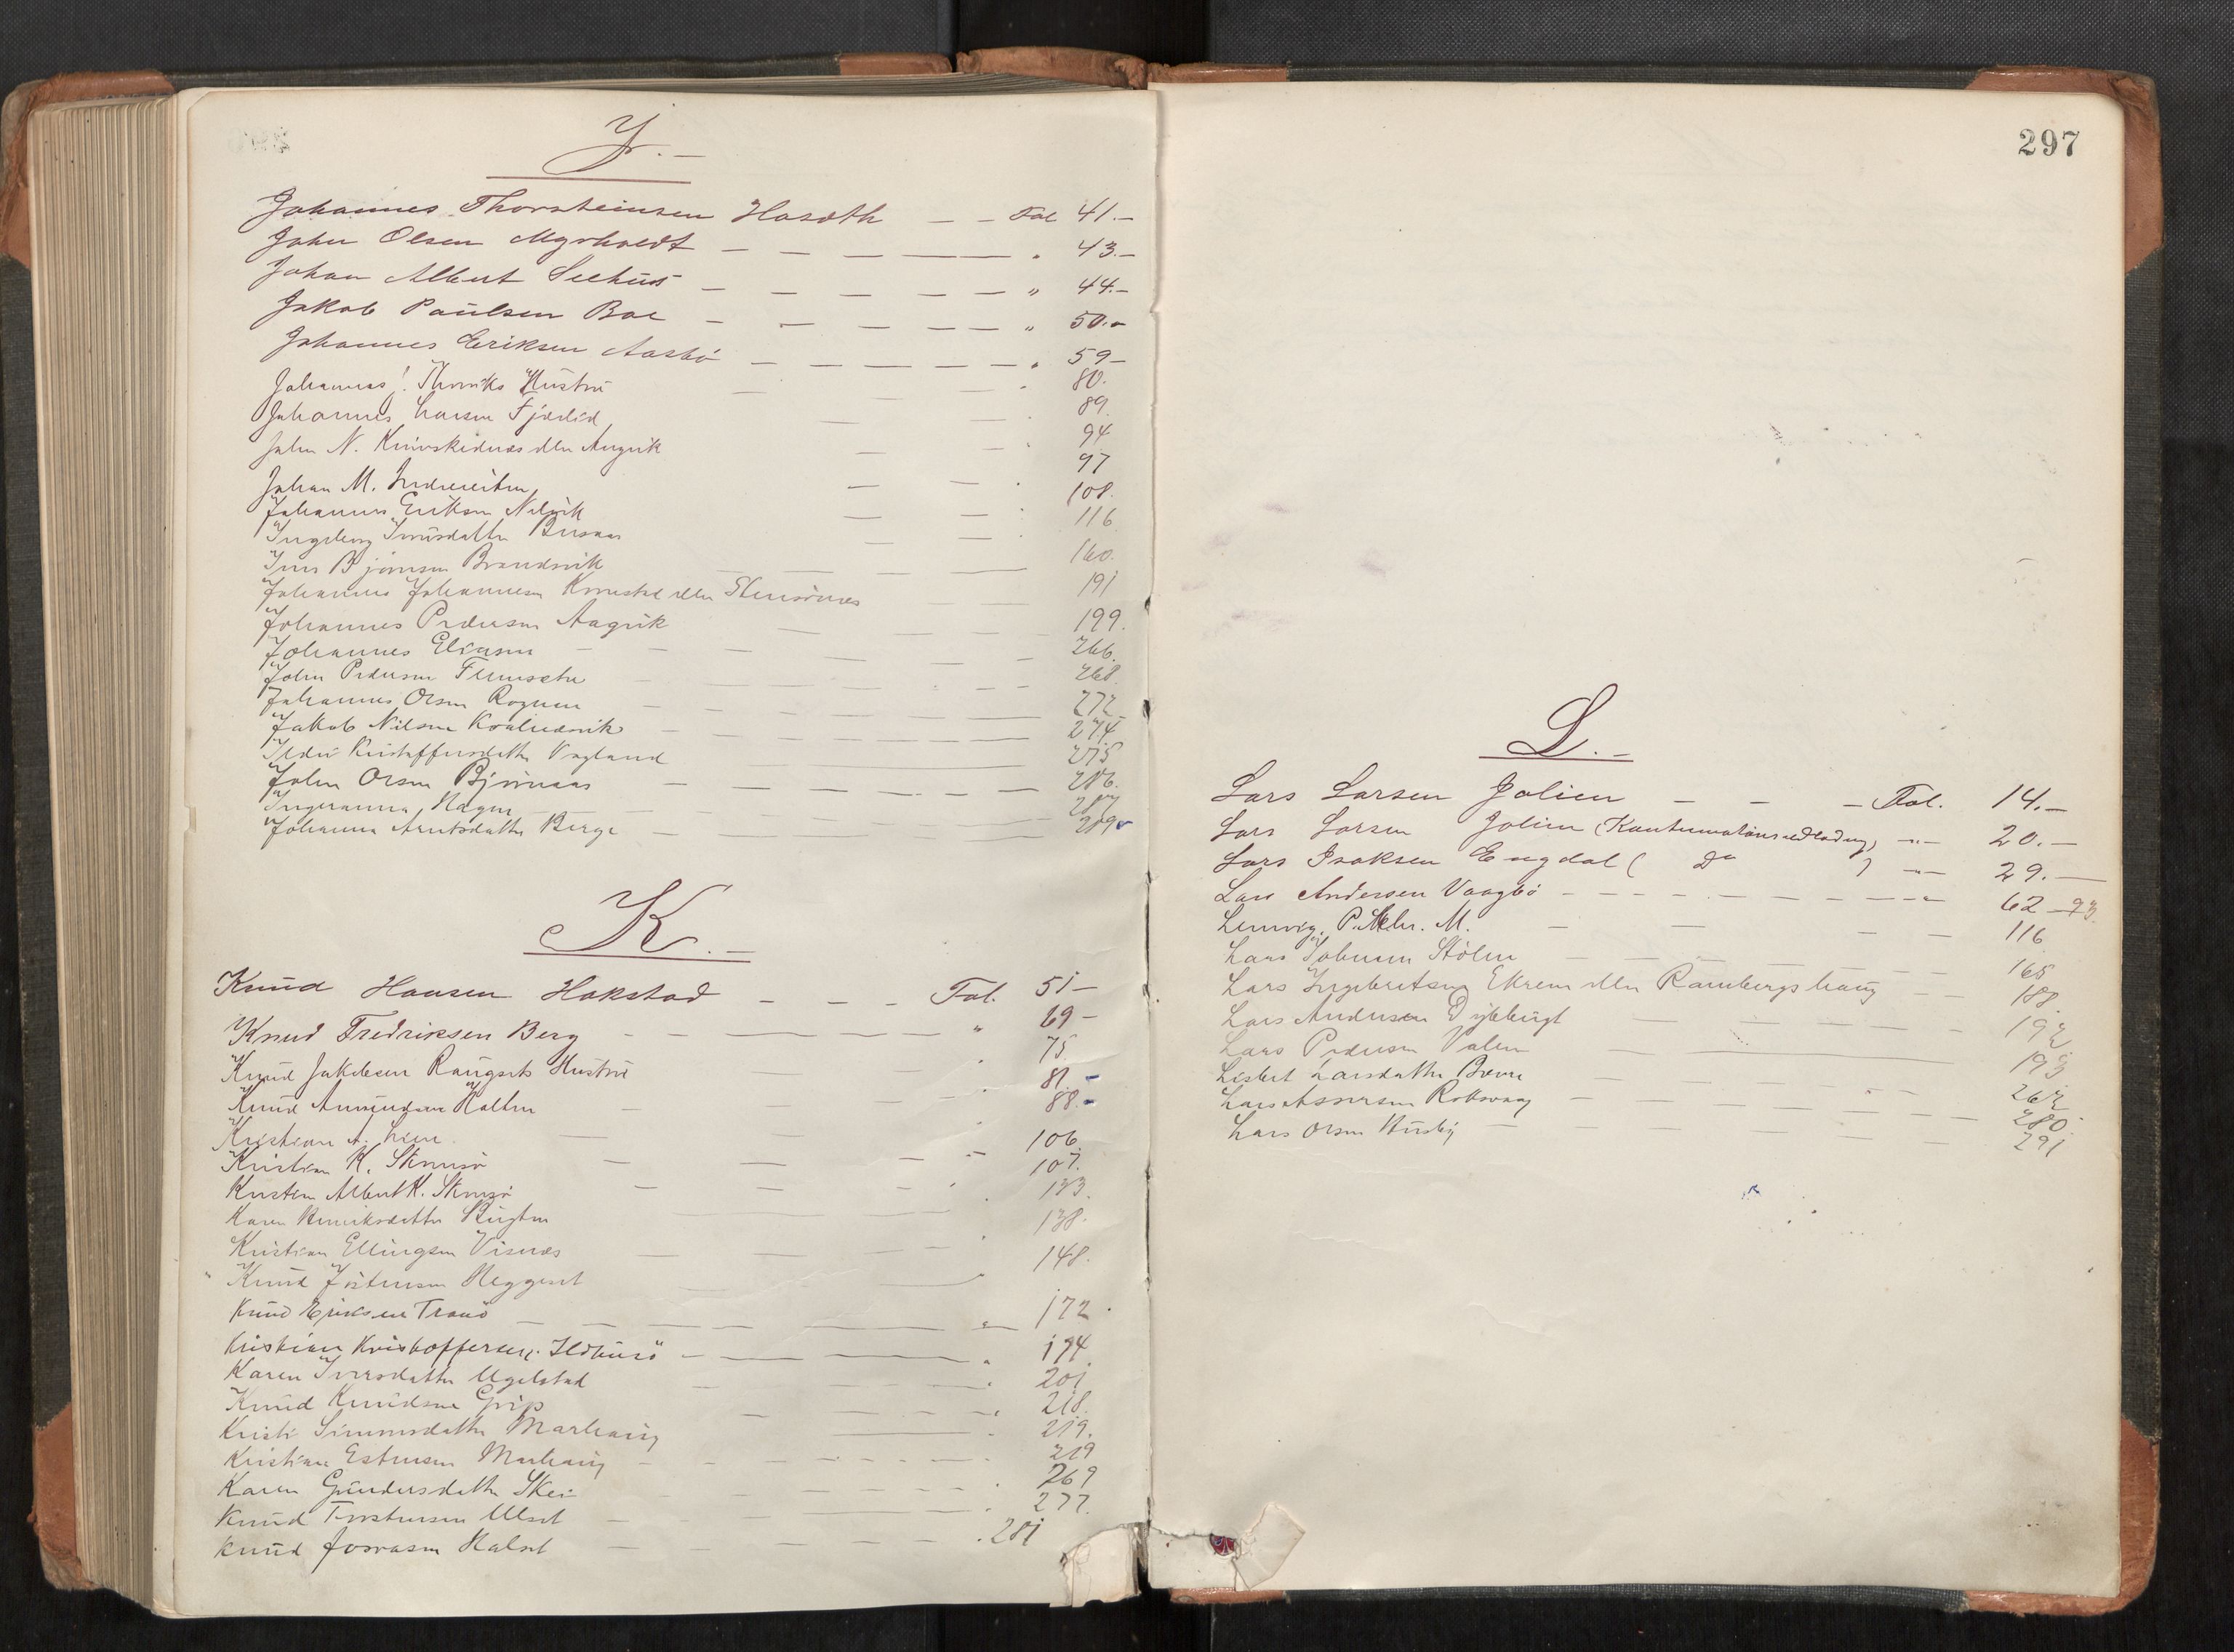 J.-
Johannes Thorsteinsen Hasæth — — Fol 41.-
John Olsen Myrholdt — — — — " 43.-
Johan Albert Seehus — — — — — " 44.-
Jakob Paulsen Boe — — — — — " 50.-
Johannes Eriksen Aasbö — — — — — " 59-
Johannes Hustru 80.
Johannes Larsen 89.
John N. eller Angvik 94
Johan M. 97
Johannes Eriksen 108.
Ingeborg 116
Iver Björnsen Brandsvik 160.
Johannes Johannesen eller 191
Johannes Pedersen Aagvik 199.
Johannes Eliasen 266.
John Pedersen 268.
Johannes Olsen Rognen 272
Jakob Nilsen 274
Kristoffersdatter Vagland 275
John Olsen Björnaas 286.
Ingeranna Hagen
Johanna Arntsdatter Berge 289
K.-
Knud Hansen Hakstad — — — Fol. 51-
Knud Fredriksen Berg — — — " 69-
Knud Jakobsen Rangsets Hustru 75.
Knud Amundsen Halten 81.-
Kristian A. Lien 88.-
Kristian K. Stensö 106.
Kristen Albert K. Stensö 107.
Karen Henriksdatter Bugten 133.
Kristian Ellingsen Visnæs 138.
Knud Jöstensen Heggeset 148.
Knud Eriksen Tranö 172.
Kristian Kristoffersen Ildhusö 194
Karen Iversdatter Ugelstad 201
Knud Knudsen Grip 218.
Kristi Simonsdatter Marhaug 219.
Kristian Estensen Marhaug 219
Karen Gundersdatter Skei 269
Knud Torstensen Ulset 277.
Knud Josvasen Halset 281
297
L.-
Lars Larsen Jolien — — — Fol. 14.-
Lars Larsen Jolien (Kontumationsudladng) -"- 20.-
Lars Isaksen Engdal ( Do ) -"- 29.-
Lars Andersen Vaagbö — — — — — 62-93.
Lemvig, P. M. 116
Lars Stölen 165
Lars Ingebretsen Ekrem eller Rambergshaug 188.
Lars Andersen Dybbugt 192
Lars Pedersen Valen 193
Lisbet Larsdatter 262
Lars Assersen Roksvaag 280.
Lars Olsen Husby 291